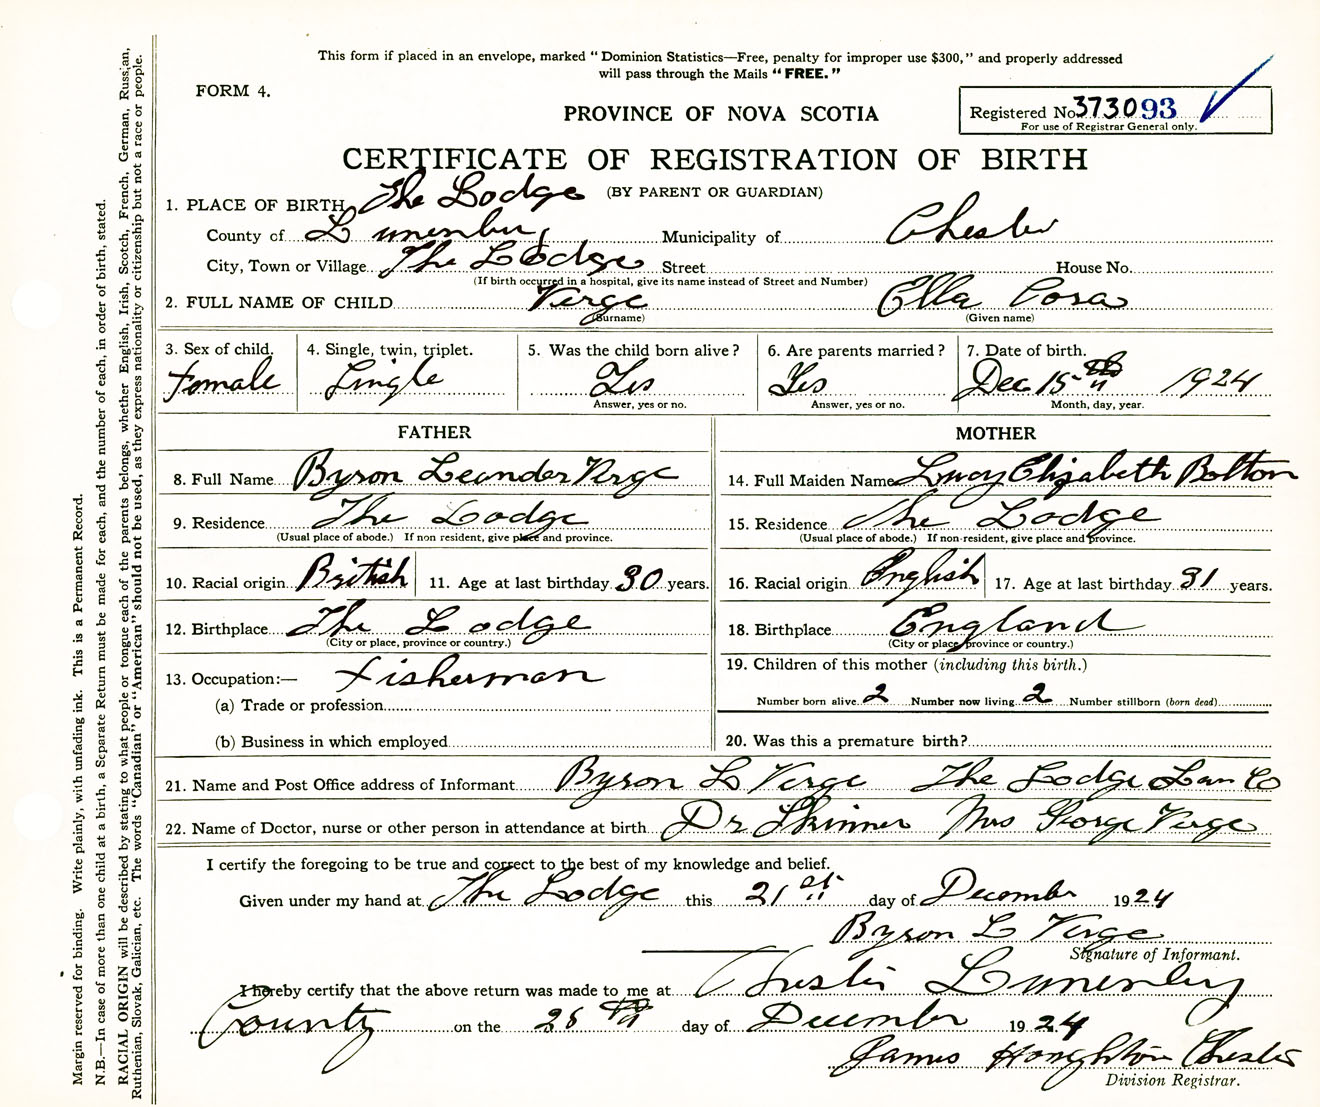 This form if placed in an envelope, marked “Dominion Statistics—Free, penalty for improper use $300,” and properly addressed
will pass through the Mails “FREE.”
FORM 4.
PROVINCE OF NOVA SCOTIA
Registered No. 373093
For use of Registrar General only.
CERTIFICATE OF REGISTRATION OF BIRTH
(BY PARENT OR GUARDIAN)
1. PLACE OF BIRTH The Lodge
County of Lunenburg Municipality of Chester
City, Town or Village The Lodge Street House No.
(If birth occurred in a hospital, give its name instead of Street and Number)
2. FULL NAME OF CHILD Verge Ella Cora
(Surname) (Given name)
3. Sex of child. 4. Single, twin, triplet. 5. Was the child born alive? 6. Are parents married? 7. Date of birth.
Female Single Yes Yes Dec 15th 1924
Answer, yes or no. Answer, yes or no. Month, day, year.
FATHER MOTHER
8. Full Name Byron Leander Verge 14. Full Maiden Name Lucy Elizabeth Bolton
9. Residence The Lodge 15. Residence The Lodge
(Usual place of abode.) If non resident, give place and province. (Usual place of abode.) If non-resident, give place and province.
10. Racial origin British 11. Age at last birthday 30 years. 16. Racial origin English 17. Age at last birthday 31 years.
12. Birthplace The Lodge 18. Birthplace England
(City or place, province or country.) (City or place, province or country.)
13. Occupation:— Fisherman 19. Children of this mother (including this birth.)
(a) Trade or profession Number born alive 2 Number now living 2 Number stillborn (born dead)
(b) Business in which employed 20. Was this a premature birth?
21. Name and Post Office address of Informant Byron L Verge The Lodge Lun Co
22. Name of Doctor, nurse or other person in attendance at birth Dr Skinner Mrs George Verge
I certify the foregoing to be true and correct to the best of my knowledge and belief.
Given under my hand at The Lodge this 21st day of December 1924
Byron L Verge
Signature of Informant.
I hereby certify that the above return was made to me at Chester Lunenburg
County on the 28th day of December 1924
James Houghton Chester
Division Registrar.
Margin reserved for binding. Write plainly, with unfading ink. This is a Permanent Record.
N.B.—In case of more than one child at a birth, a Separate Return must be made for each, and the number of each, in order of birth, stated.
RACIAL ORIGIN will be described by stating to what people or tongue each of the parents belongs, whether English, Irish, Scotch, French, German, Russian,
Ruthenian, Slovak, Galician, etc. The words “Canadian” or “American” should not be used, as they express nationality or citizenship but not a race or people.